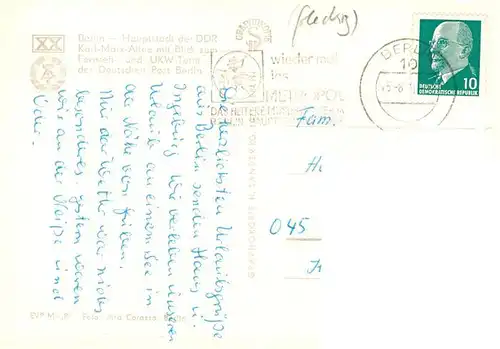 (fleckig)
XX
Berlin — Hauptstadt der DDR
Karl-Marx-Allee mit Blick zum
Fernseh- und UKW-Turm
der Deutschen Post Berlin
GRAPHOKOPIE
wieder mal
ins
METROPOL
BERLIN
10
DEUTSCHE
DEMOKRATISCHE REPUBLIK
10
Die herzlichsten Urlaubsgrüße
aus Berlin senden Hans u.
Ingeburg. Wir verleben unseren
Urlaub an einem See in
der Nähe von
Nur der Wetter war nichts
besonderes. Gestern waren
wir an der Neiße und
Fam.
H
045
H
GRAPHOKOPIE H. SANDER KG,
EVP MDN
Foto: Berlin